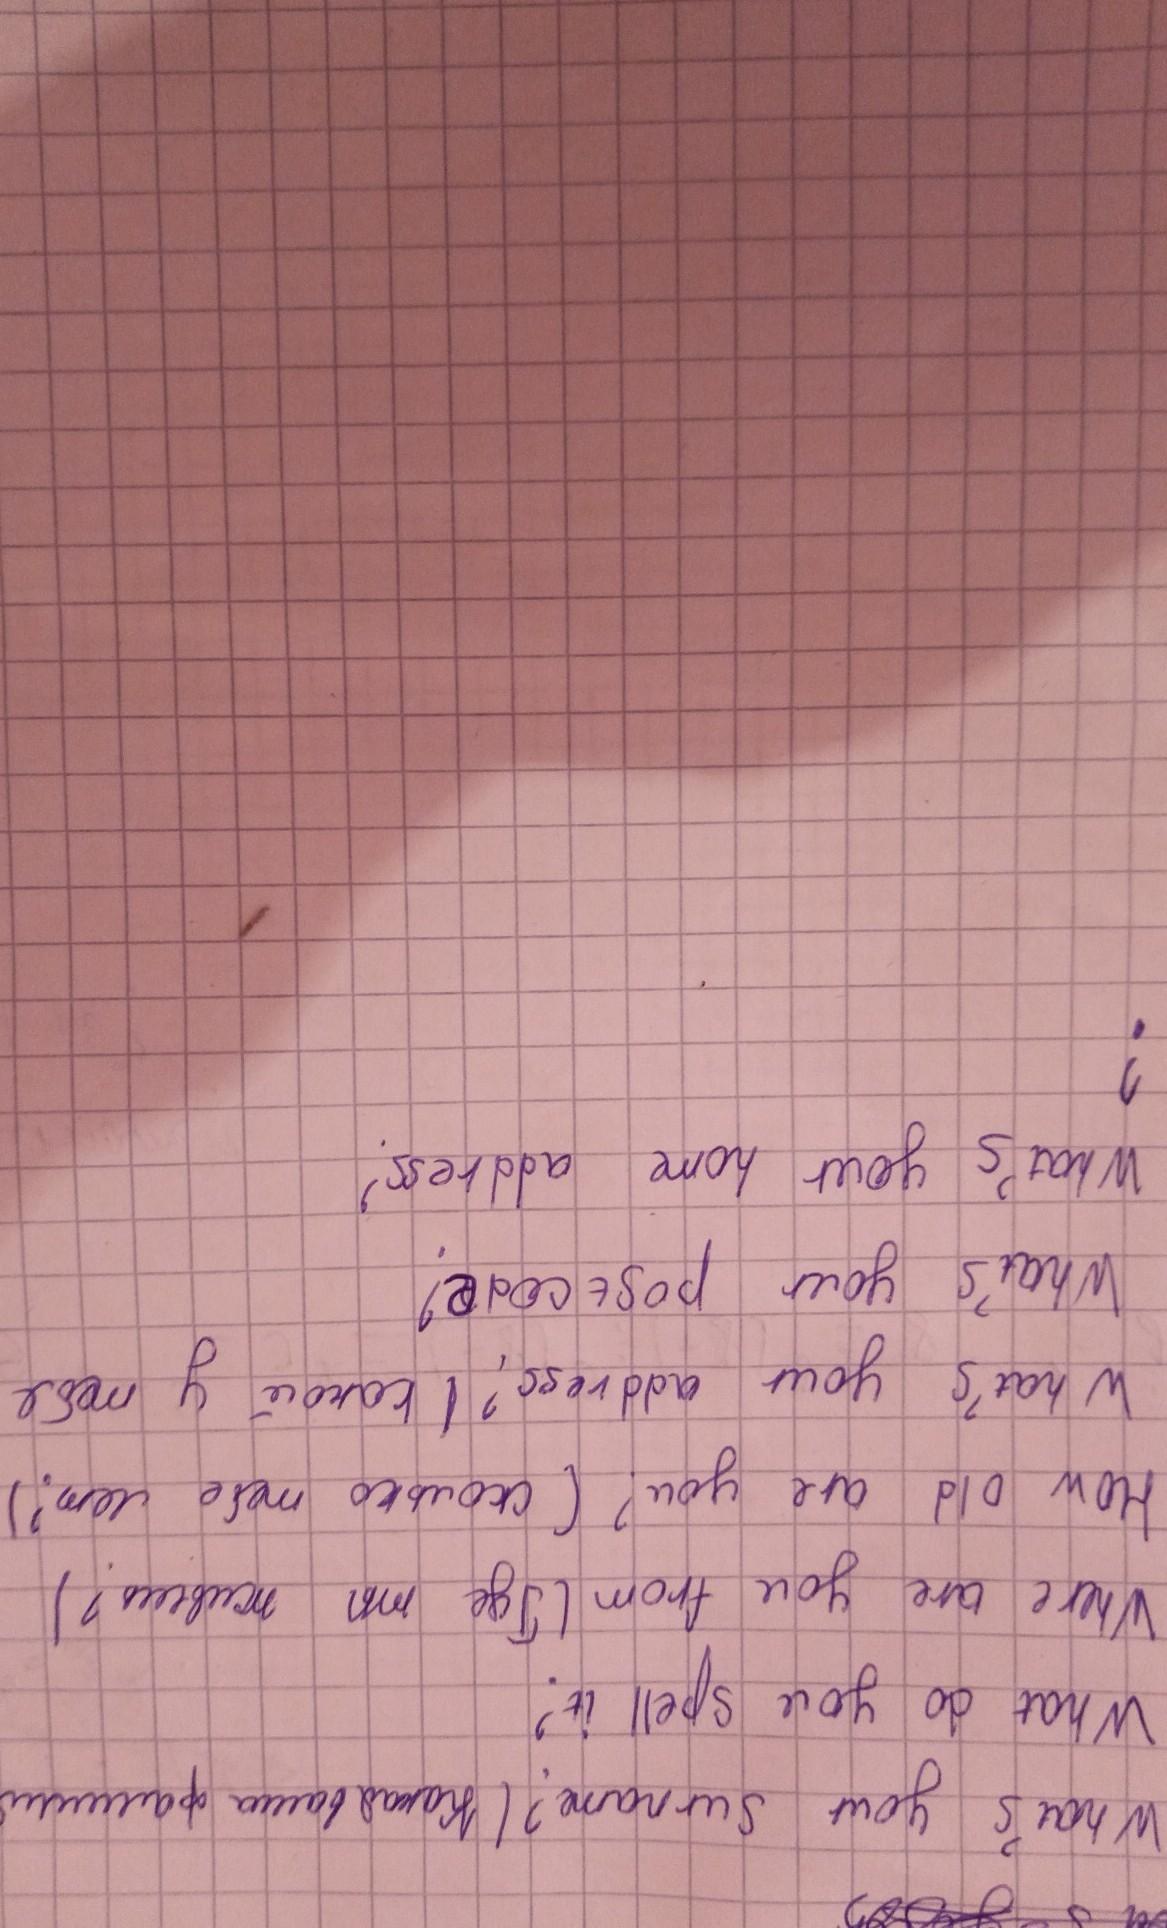 What's your surname? (Какая ваша фамилия
What do you spell it?
Where are you from (Где ты живешь?)
How old are you? (сколько тебе лет?)
What's your address? (какой у тебя
What's your postcode?
What's your home address?
?